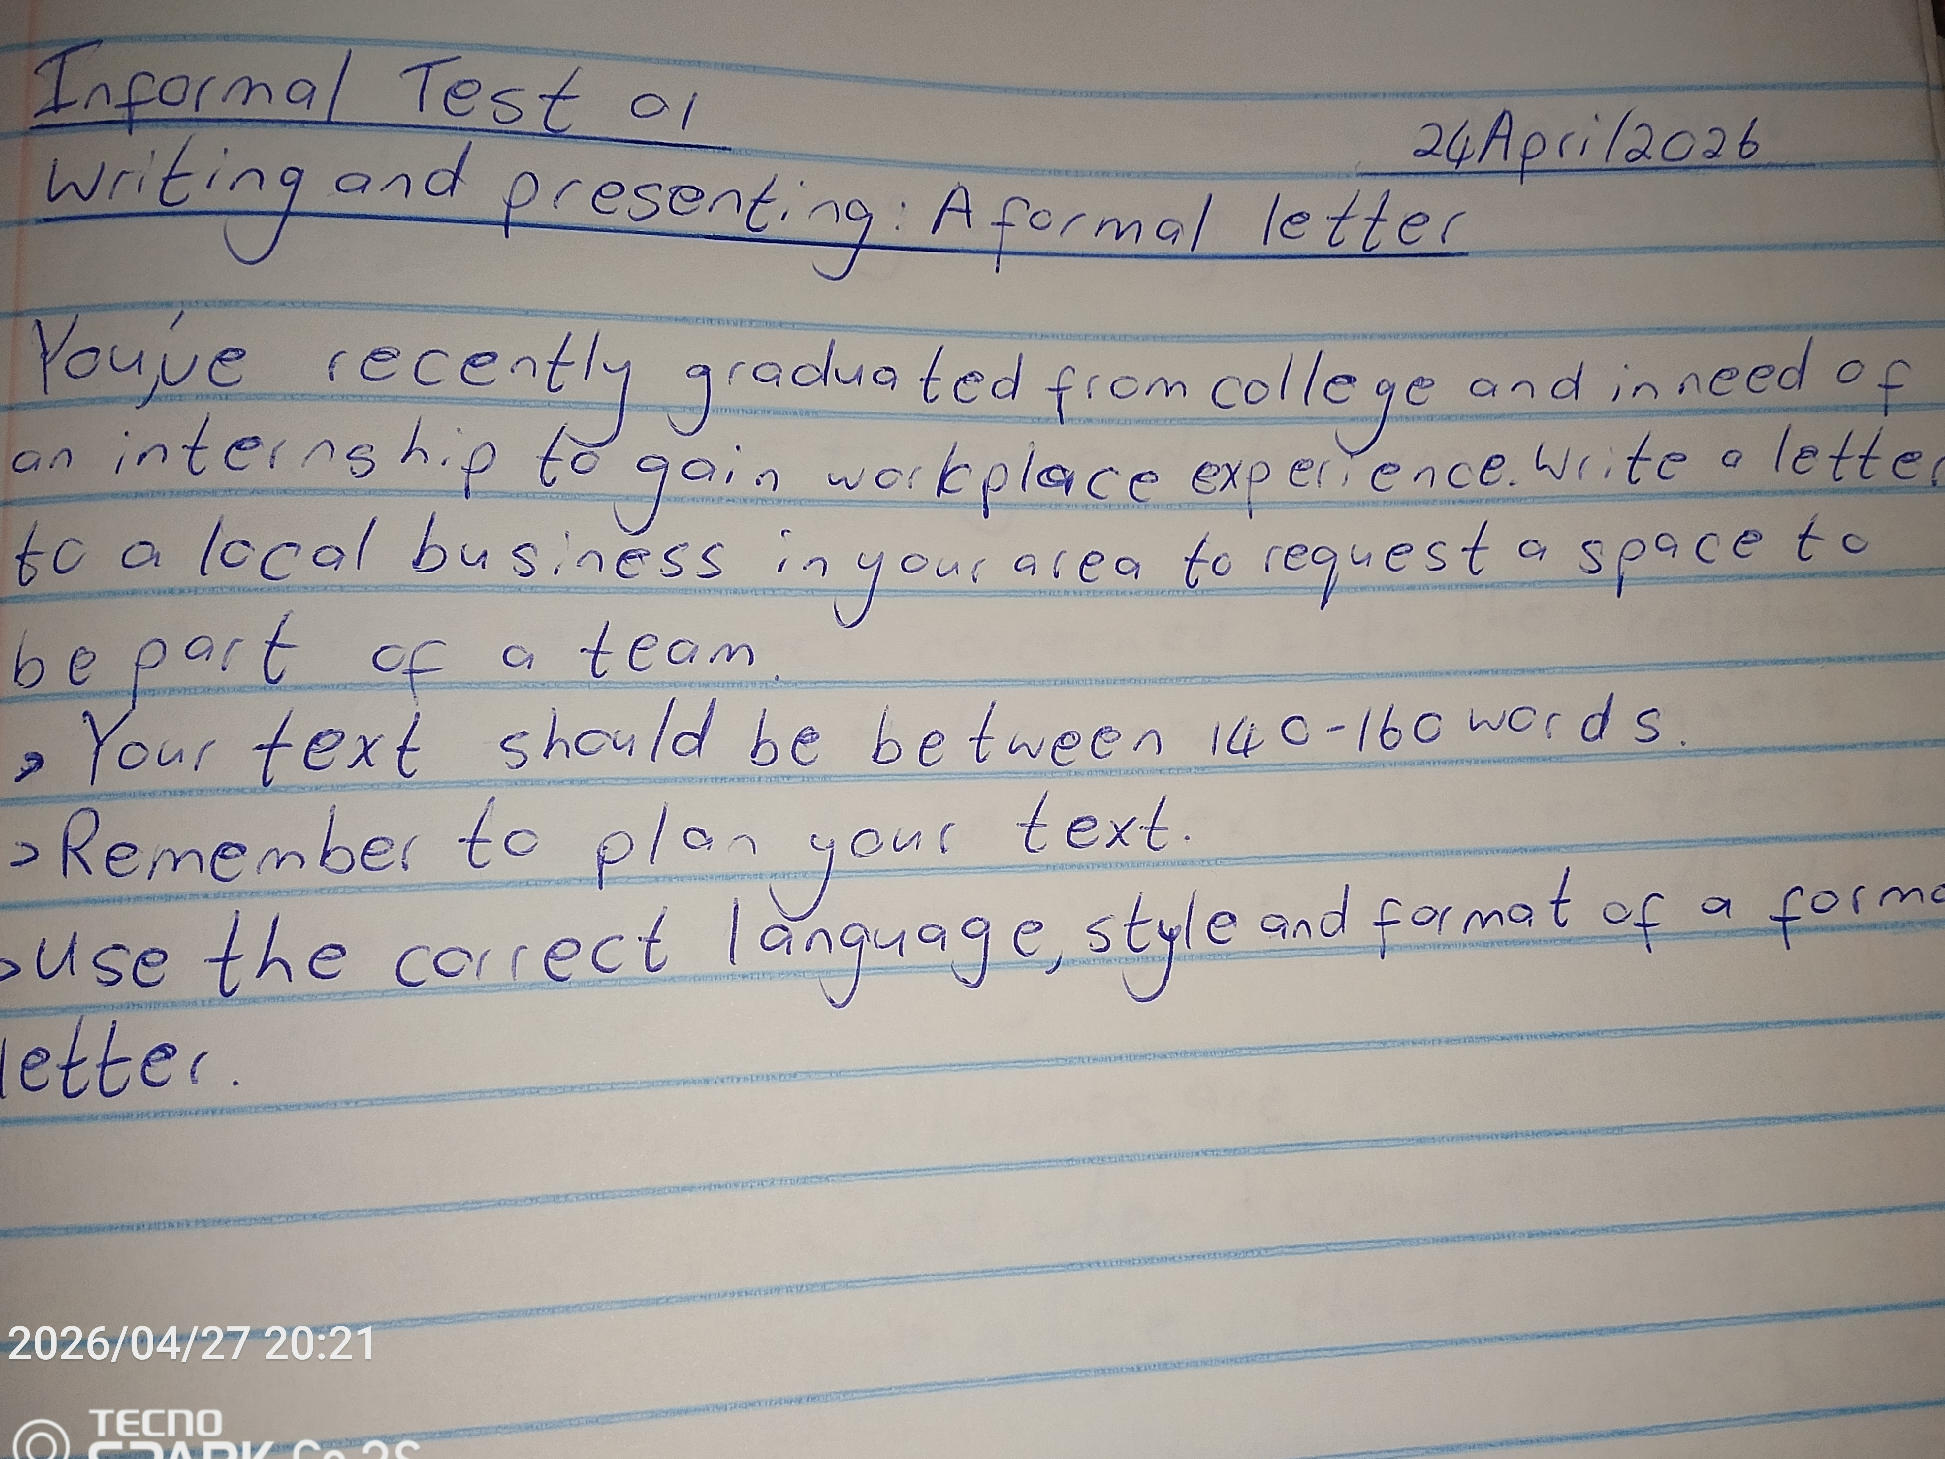 Informal Test 01
24 April 2026
Writing and presenting: A formal letter
You've recently graduated from college and in need of
an internship to gain workplace experience. Write a letter
to a local business in your area to request a space to
be part of a team.
Your text should be between 140-160 words.
> Remember to plan your text.
> Use the correct language, style and format of a forma
letter.
2026/04/27 20:21
TECNO
SPARK Go 2S